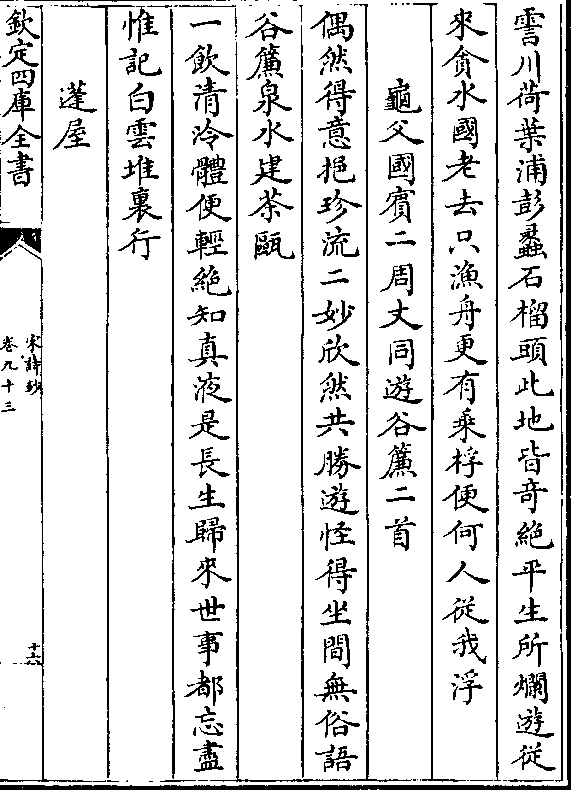 霅川荷葉浦彭蠡石榴頭此地皆奇絶平生所爛遊從
來貪水國老去只漁舟更有乗桴便何人從我浮
龜父國賓二周丈同遊谷簾二首
偶然得意挹珍流二妙欣然共勝遊怪得坐間無俗語
谷簾泉水建茶甌
一飲清泠體便輕絶知真液是長生歸來世事都忘盡
惟記白雲堆裏行
蓬屋
欽定四庫全書
宋詩鈔
卷九十三
十六